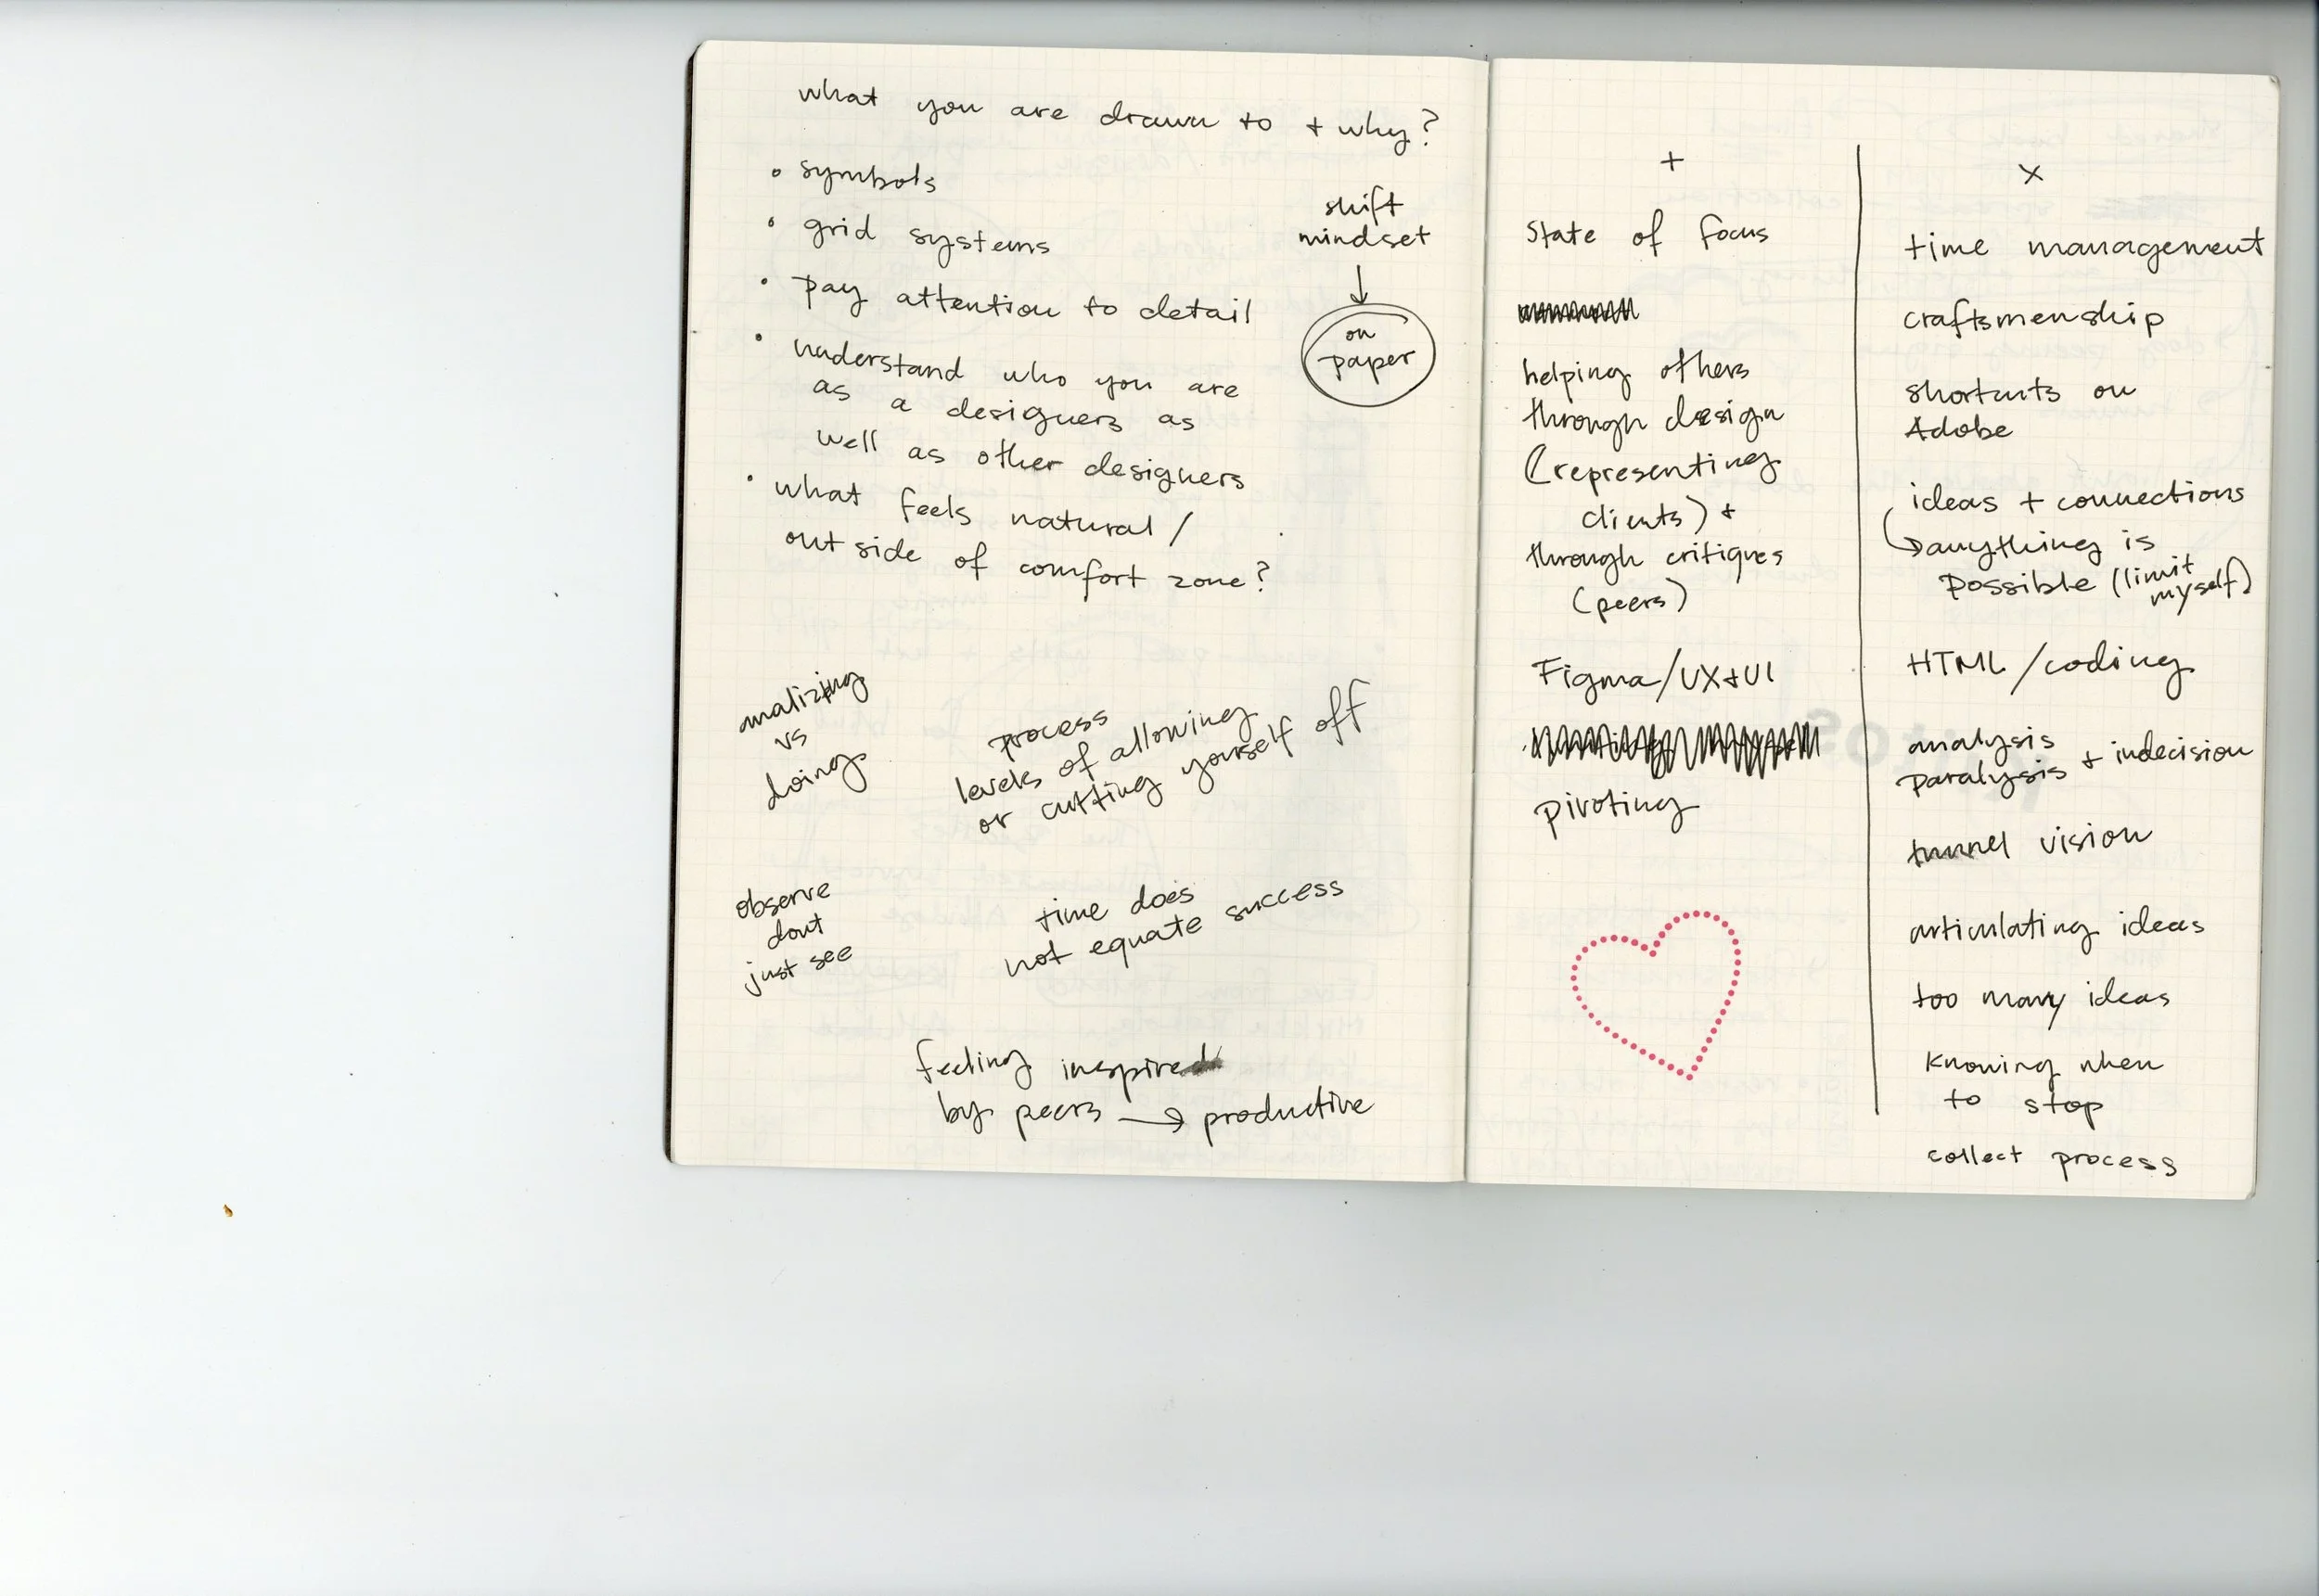 what you are drawn to + why?
• symbols
• grid systems
• pay attention to detail
• understand who you are
as a designers as
well as other designers
• what feels natural /
outside of comfort zone?
shift
mindset
↓
on
paper
analizing
vs
doing
process
levels of allowing
or cutting yourself off
observe
dont
just see
time does
not equate success
feeling inspired
by peers → productive
+
State of focus
helping others
through design
(representing
clients) +
through critiques
(peers)
Figma/UX+UI
pivoting
x
time management
craftsmenship
shortcuts on
Adobe
ideas + connections
↳ anything is
possible (limit
myself)
HTML/coding
analysis
paralysis + indecision
tunnel vision
articulating ideas
too many ideas
knowing when
to stop
collect process